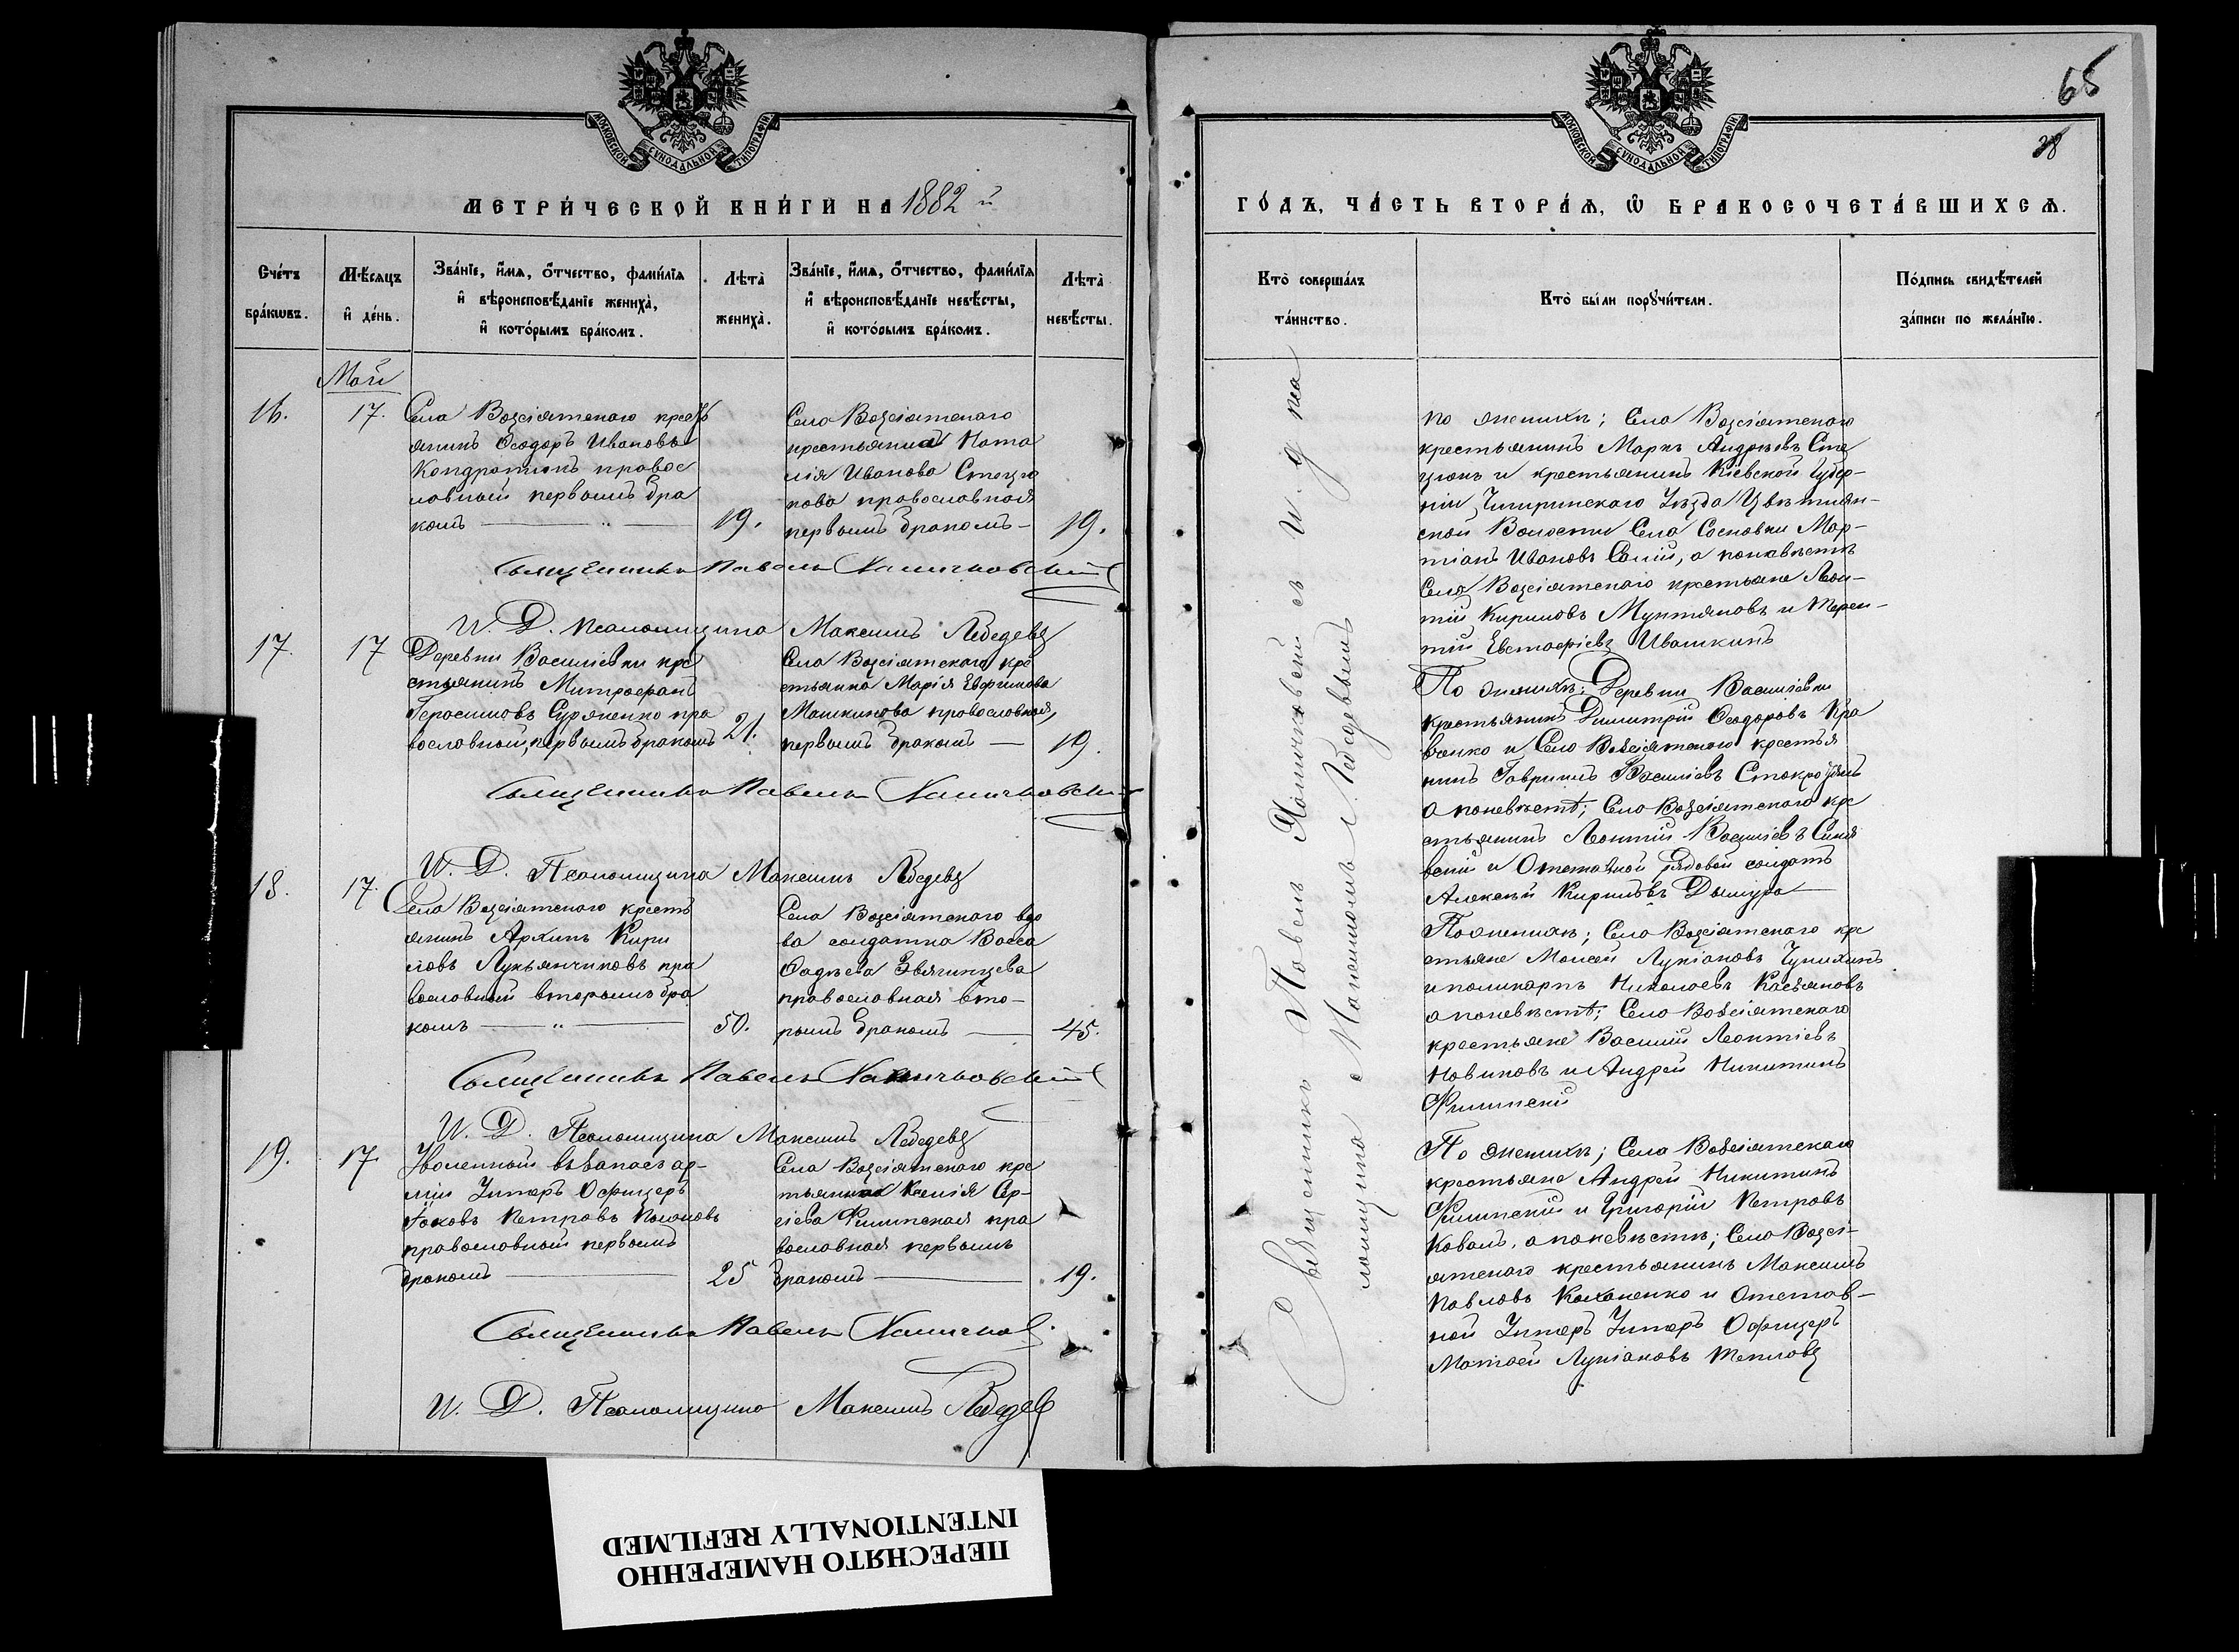 МОСКОВСКОЙ СУНОДАЛЬНОЙ ТИПОГРАФІИ
МЕТРИ́ЧЕСКОЙ КНИ́ГИ НА 1882 й
Сче́тъ бра́кωвъ.
Мѣ́сяцъ и де́нь.
Зва́нїе, и́мѧ, ѻ́тчество, фами́лїѧ и вѣроисповѣ́данїе жениха̀, и кото́рымъ бра́комъ.
Лѣта̀ жениха̀.
Зва́нїе, и́мѧ, ѻ́тчество, фами́лїѧ и вѣроисповѣ́данїе невѣ́сты, и кото́рымъ бра́комъ.
Лѣта̀ невѣ́сты.
Май
16.
17.
Села Возсіятскаго крест
янинъ Ѳеодоръ Ивановъ
Кондратюкъ правос
лавный первымъ бра
комъ — " —
19.
Села Возсіятскаго
крестьянка Ната
лія Иванова Стецю
кова православная
первымъ бракомъ —
19.
Священникъ Павелъ
И. Д. Псаломщика Максимъ Лебедевъ
17.
17
Деревни Василіевки кре
стьянинъ Митрофанъ
Герасимовъ пра
вославный, первымъ бракомъ
21.
Села Возсіятскаго кре
стьянка Марія Евфимова
Машкинова православная,
первымъ бракомъ —
19.
Священникъ Павелъ
И. Д. Псаломщика Максимъ Лебедевъ
18.
17.
Села Возсіятскаго кресть
янинъ Архипъ Кири
ловъ Лукьянчиковъ пра
вославный вторымъ бра
комъ — " —
50.
Села Возсіятскаго вдо
ва солдатка Васса
Фадѣева Звягинцева
православная вто-
рымъ бракомъ —
45.
Священникъ Павелъ
И. Д. Псаломщика Максимъ Лебедевъ
19.
17
Уволенный въ запасъ ар-
міи Унтеръ Офицеръ
Яковъ Петровъ
православный первымъ
бракомъ —
25
Села Возсіятскаго кре
тьянка Ксенія Сер-
гіева Филипская пра
вославная первымъ
бракомъ —
19.
Священникъ Павелъ
И. Д. Псаломщика Максимъ Лебедевъ
65
28
МОСКОВСКОЙ СУНОДАЛЬНОЙ ТИПОГРАФІИ
ГО́ДЪ, ЧА́СТЬ ВТОРА́Ѧ, Ѿ БРАКОСОЧЕТА́ВШИХСѦ.
Кто̀ соверша́лъ та́инство.
Кто̀ бы́ли порꙋчи́тели.
По́дпись свидѣ́телей за́писи по жела́нїю.
Священникъ Павелъ съ И. д. пса
ломщика Максимомъ Лебедевымъ
по женихѣ; Села Возсіятскаго
крестьянинъ Маркъ Андреевъ Сте
цюкъ и крестьянинъ Кіевской Губер-
ніи Чигиринскаго Уѣзда Цвѣтнян-
ской Волости Села Сосновки Мар-
тіанъ Ивановъ а по невѣстѣ
Села Возсіятскаго крестьяне Леон-
тій Кириловъ Мунтяновъ и Терен-
тій Евстафіевъ Ивашкинъ
По женихѣ; Деревни Василіевки
крестьянинъ Димитрій Ѳеодоровъ Кра
вченко и Села Возсіятскаго крестья
нинъ Гавріилъ Василіевъ
а по невѣстѣ; Села Возсіятскаго кре
стьянинъ Леонтій Василіевъ Синя
вскій и Отставной рядовой солдатъ
Алексѣй Кириловъ
По женихѣ; Села Возсіятскаго кре
стьяне Моисей Лукіановъ
и Поликарпъ Николаевъ Касьяновъ
а по невѣстѣ; Села Возсіятскаго
крестьяне Василій Леонтіевъ
Новиковъ и Андрей Никитинъ
Филипскій
По женихѣ; Села Возсіятскаго
крестьяне Андрей Никитинъ
Филипскій и Григорій Петровъ
Коваль, а по невѣстѣ; Села Возсі-
ятскаго крестьянинъ Максимъ
Павловъ Кохоненко и Отстав-
ной Унтеръ Унтеръ Офицеръ
Матвей Лукіановъ Тепловъ
ПЕРЕСНЯТО НАМЕРЕННО
INTENTIONALLY REFILMED